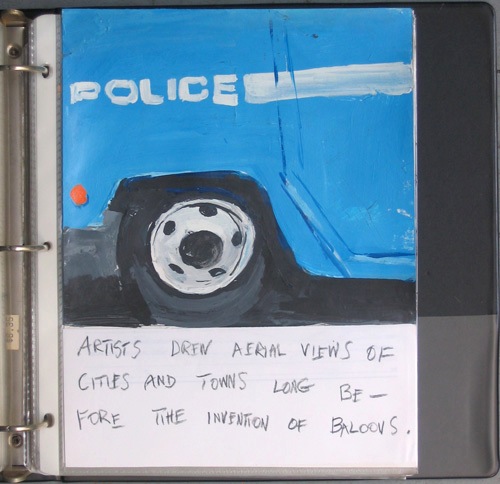 POLICE
ARTISTS DREW AERIAL VIEWS OF
CITIES AND TOWNS LONG BE-
FORE THE INVENTION OF BALOOUS.